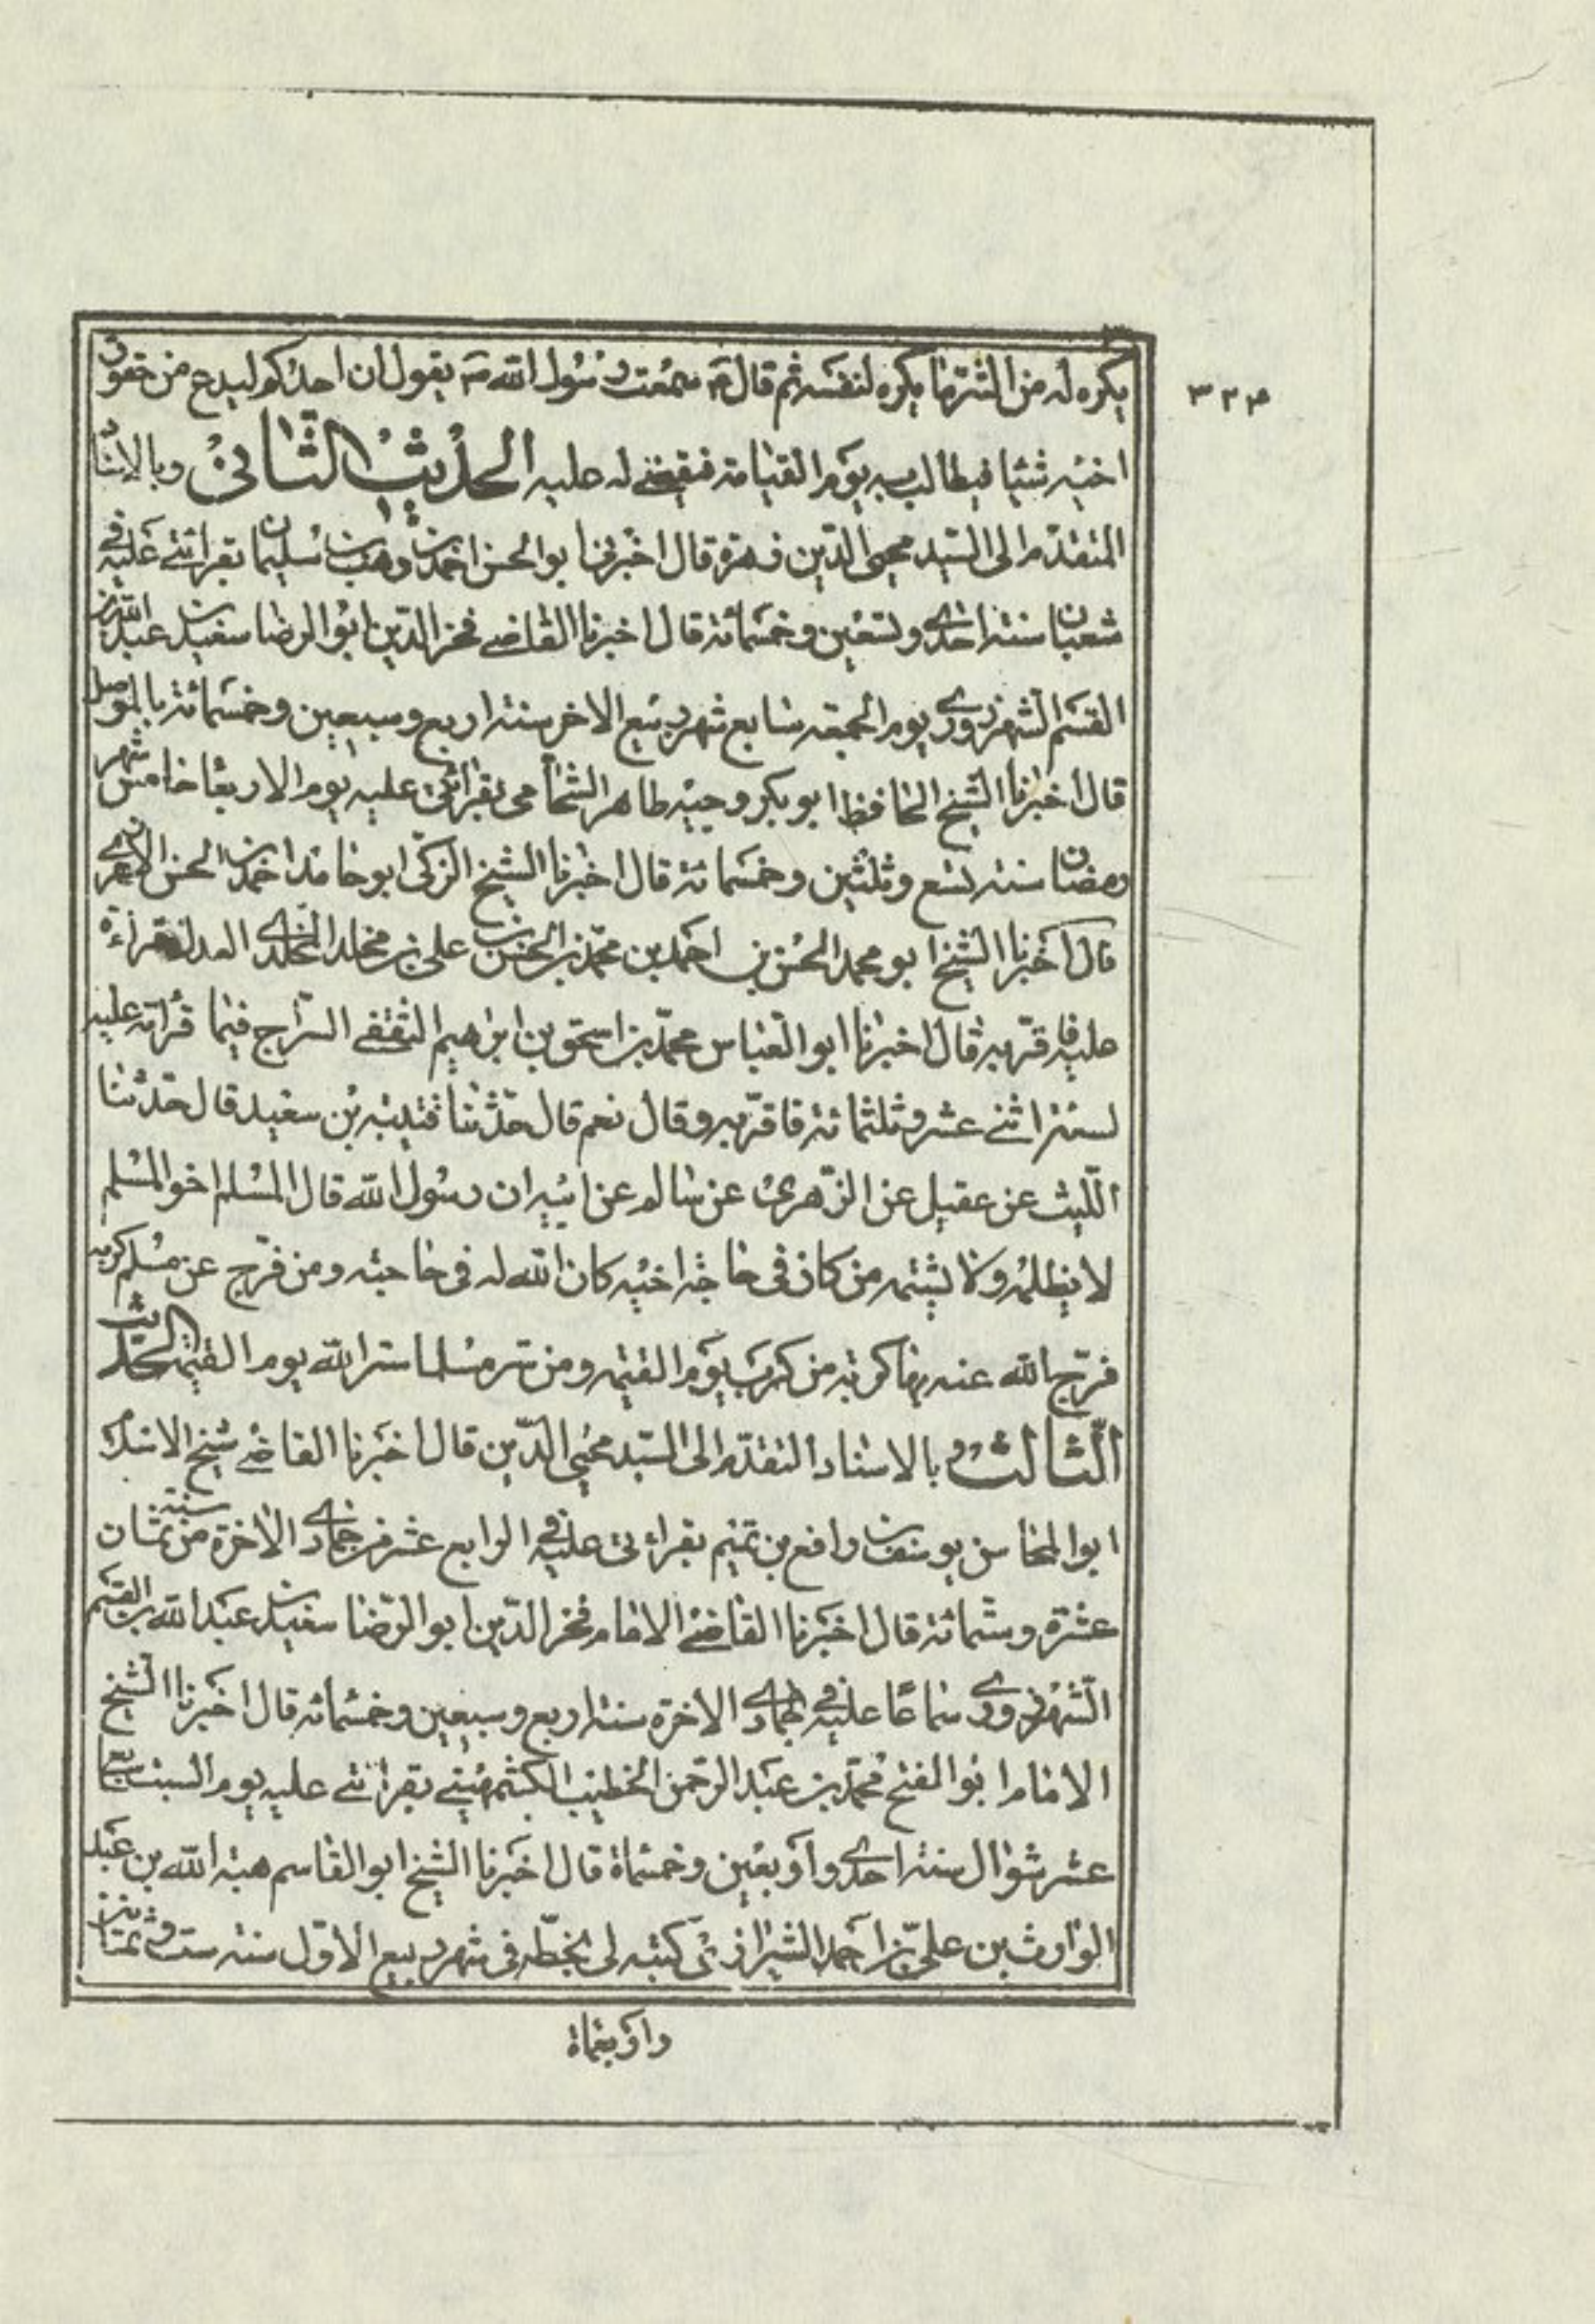 يكره له من الشر ما يكره لنفسه ثم قال ع سمعت رسول الله ص يقول ان احدكم ليدع من حقوق
٣٢٤
اخيه شيئا فيطالب به يوم القيامة فيقضى له عليه الحديث الثانى وبالاسناد
المتقدم الى السيد محيى الدين زهرة قال اخبرنى ابو الحسن احمد بن وهب بن سليمان بقرائتى عليه فى
شعبان سنة احدى وتسعين وخمسمائة قال اخبرنا القاضى فخر الدين ابو الرضا سعيد بن عبد الله بن
القسم الشهرزورى يوم الجمعة سابع شهر ربيع الاخر سنة اربع وسبعين وخمسمائة بالموصل
قال اخبرنا الشيخ الحافظ ابو بكر وجيه طاهر الشحامى بقرائتى عليه يوم الاربعا خامس شهر
رمضان سنة تسع وثلثين وخمسمائة قال اخبرنا الشيخ الزكى ابو حامد احمد بن الحسن الازهرى
قال اخبرنا الشيخ ابو محمد الحسن بن احمد بن محمد بن الحسن بن على بن مخلد المخلدى العدل قراءة
عليه فاقر به قال اخبرنا ابو العباس محمد بن اسحق بن ابراهيم الثقفى السراج فيما قرأته عليه
لسنة اثنى عشر وثلثمائة فاقر به وقال نعم قال حدثنا قتيبة بن سعيد قال حدثنا
الليث عن عقيل عن الزهرى عن سالم عن ابيه ان رسول الله قال المسلم اخو المسلم
لا يظلمه ولا يشتمه من كان فى حاجة اخيه كان الله له فى حاجته ومن فرج عن مسلم كربة
فرج الله عنه بها كربة من كرب يوم القيمة ومن ستر مسلما ستر الله يوم القيمة الحديث
الثالث بالاسناد المتقدم الى السيد محيى الدين قال اخبرنا القاضى شيخ الاسلام
ابو المحاسن يوسف بن رافع بن تميم بقرائتى عليه فى الرابع عشر من جمادى الاخرة من سنة ثمان
عشرة وستمائة قال اخبرنا القاضى الامام فخر الدين ابو الرضا سعيد بن عبد الله بن القسم
الشهرزورى سماعا عليه فى جمادى الاخرة سنة اربع وسبعين وخمسمائة قال اخبرنا الشيخ
الامام ابو الفتح محمد بن عبد الرحمن الخطيب الكشمهينى بقرائتى عليه يوم السبت سابع
عشر شوال سنة احدى واربعين وخمسماة قال اخبرنا الشيخ ابو القاسم هبة الله بن عبد
الوارث بن على بن احمد الشيرازى كتبه لى بخطه فى شهر ربيع الاول سنة ست وثمانين
واربعماة